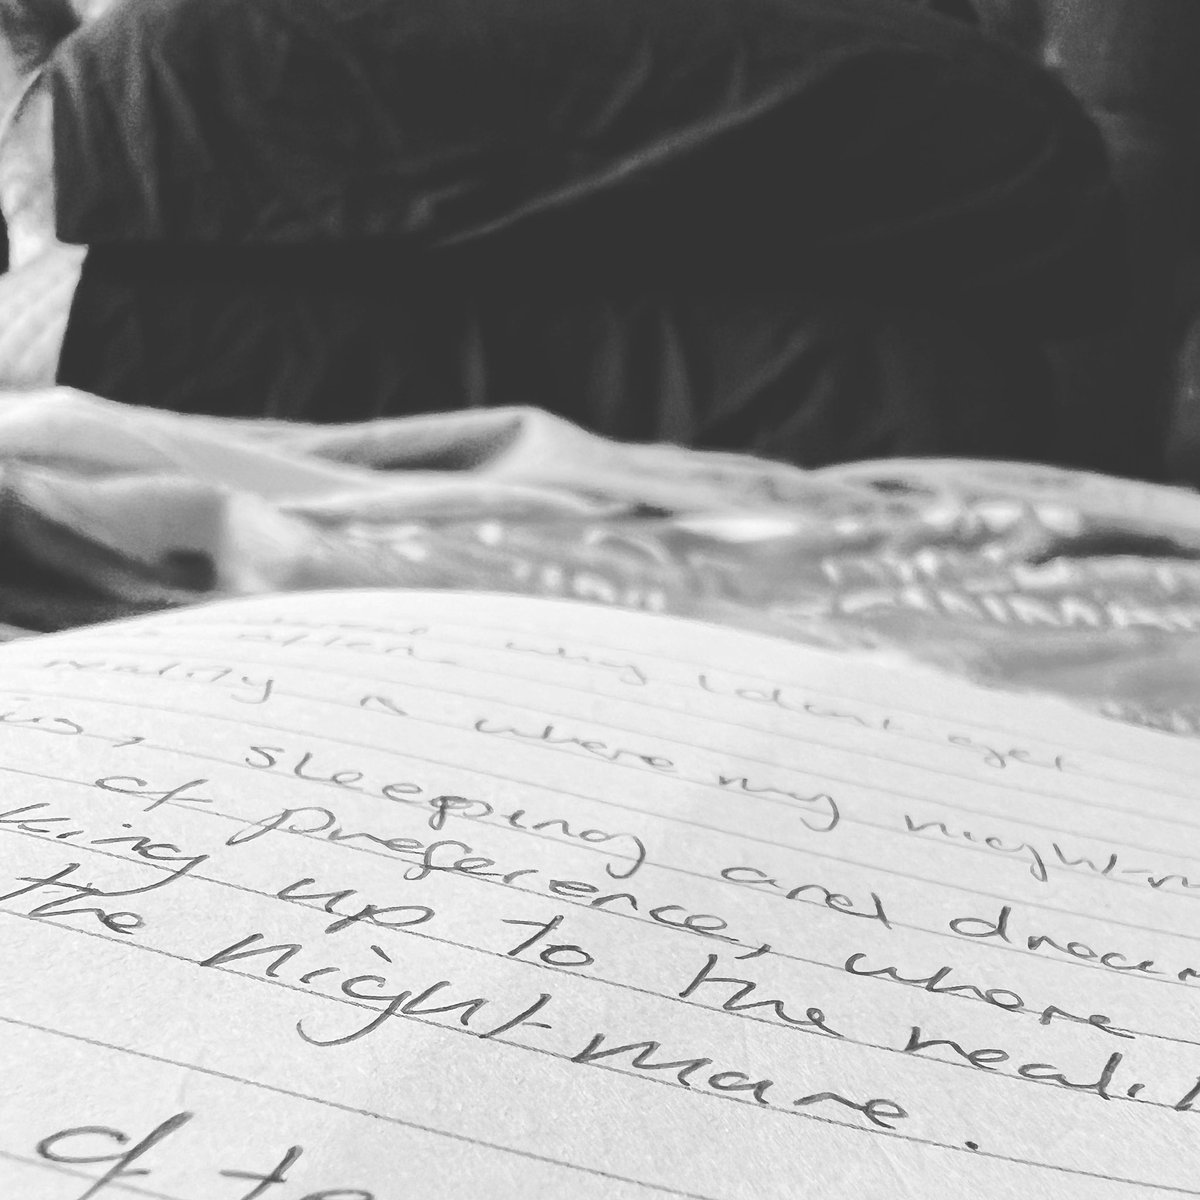 often. why I dont get
reality is where my nightm
, sleeping and dream
of preference, where
king up to the realit
the nightmare.
of te